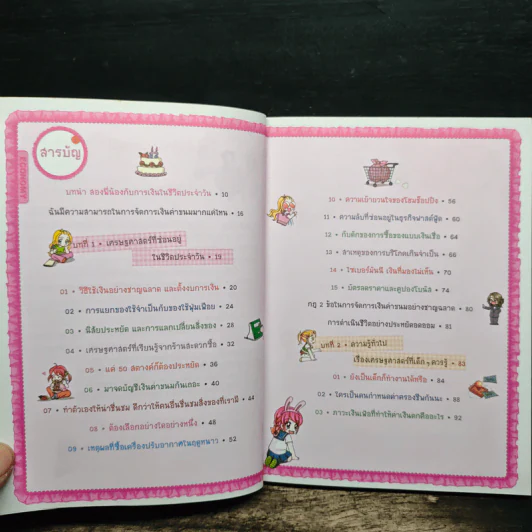 สารบัญ
ECONOMY
บทนำ สองพี่น้องกับการเงินในชีวิตประจำวัน • 10
ฉันมีความสามารถในการจัดการเงินค่าขนมมากแค่ไหน • 16
บทที่ 1 • เศรษฐศาสตร์ที่ซ่อนอยู่
ในชีวิตประจำวัน • 19
01 • วิธีใช้เงินอย่างชาญฉลาด และตั้งงบการเงิน • 20
02 • การแยกของใช้จำเป็นกับของใช้ฟุ่มเฟือย • 24
03 • นิสัยประหยัด และการแลกเปลี่ยนสิ่งของ • 28
04 • เศรษฐศาสตร์ที่เรียนรู้จากร้านสะดวกซื้อ • 32
05 • แค่ 50 สตางค์ก็ต้องประหยัด • 36
06 • มาจดบัญชีเงินค่าขนมกันเถอะ • 40
07 • ทำตัวเองให้น่าชื่นชม ดีกว่าให้คนอื่นชื่นชมสิ่งของที่เรามี • 44
08 • ต้องเลือกอย่างใดอย่างหนึ่ง • 48
09 • เหตุผลที่ซื้อเครื่องปรับอากาศในฤดูหนาว • 52
10 • ความเย้ายวนใจของโฮมช็อปปิ้ง • 56
11 • ความลับที่ซ่อนอยู่ในธุรกิจฟาสต์ฟู้ด • 60
12 • กับดักของการซื้อของแบบเงินเชื่อ • 64
13 • สาเหตุของการบริโภคเกินจำเป็น • 66
14 • ไซเบอร์มันนี่ เงินที่มองไม่เห็น • 70
15 • บัตรลดราคาและคูปองโบนัส • 74
กฎ 2 ข้อในการจัดการเงินค่าขนมอย่างชาญฉลาด • 80
การดำเนินชีวิตอย่างประหยัดอดออม • 81
บทที่ 2 • ความรู้ทั่วไป
เรื่องเศรษฐศาสตร์ที่เด็ก ๆ ควรรู้ • 83
01 • ยังเป็นเด็กก็ทำงานได้หรือ • 84
02 • ใครเป็นคนกำหนดค่าครองชีพกันนะ • 88
03 • ภาวะเงินเฟ้อที่ทำให้ค่าเงินตกคืออะไร • 92